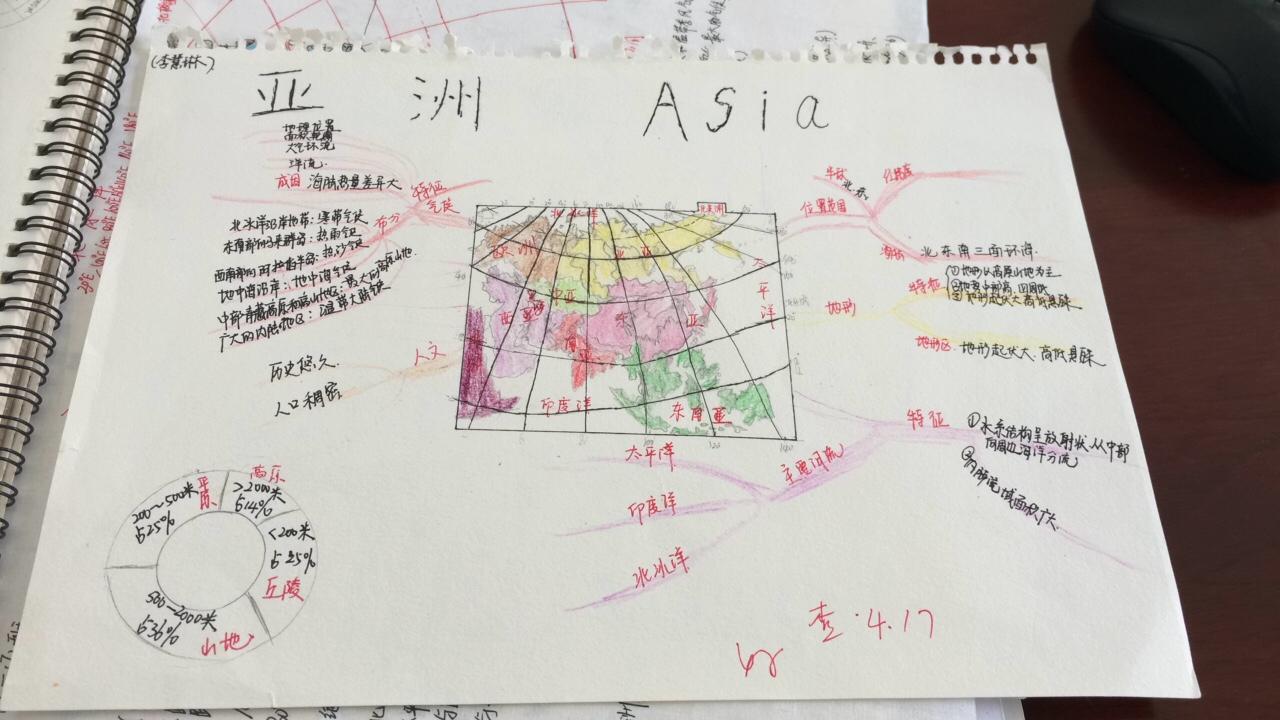 (李慧琳)
亚 洲 Asia
地理位置
大气环流
洋流
成因 海陆热量差异大
特征
气候
布分
北冰洋沿岸地带：寒带气候
东南部的马来群岛：热雨气候
西南部的阿拉伯半岛：热沙气候
地中海沿岸：地中海气候
中部青藏高原和高山地区：最大的高原山地
广大的内陆地区：温带大陆性
历史悠久
人口稠密
人文
北冰洋
欧洲
北亚
中亚
西亚
东 亚
南亚
东南亚
印度洋
太
平
洋
半球
北、东
经纬度
位置范围
海陆
北东南三面环海
地形
特征
①地形以高原山地为主
②地势中部高，四周低
③地形起伏大高低悬殊
地形区 地形起伏大，高低悬殊
特征
①水系结构呈放射状从中部
向周边海洋分流
②内流流域面积广大
主要河流
太平洋
印度洋
北冰洋
高原
>2000米
占14%
<200米
占25%
丘陵
500~2000米
占36%
山地
200~500米
占25%
平原
查·4.17